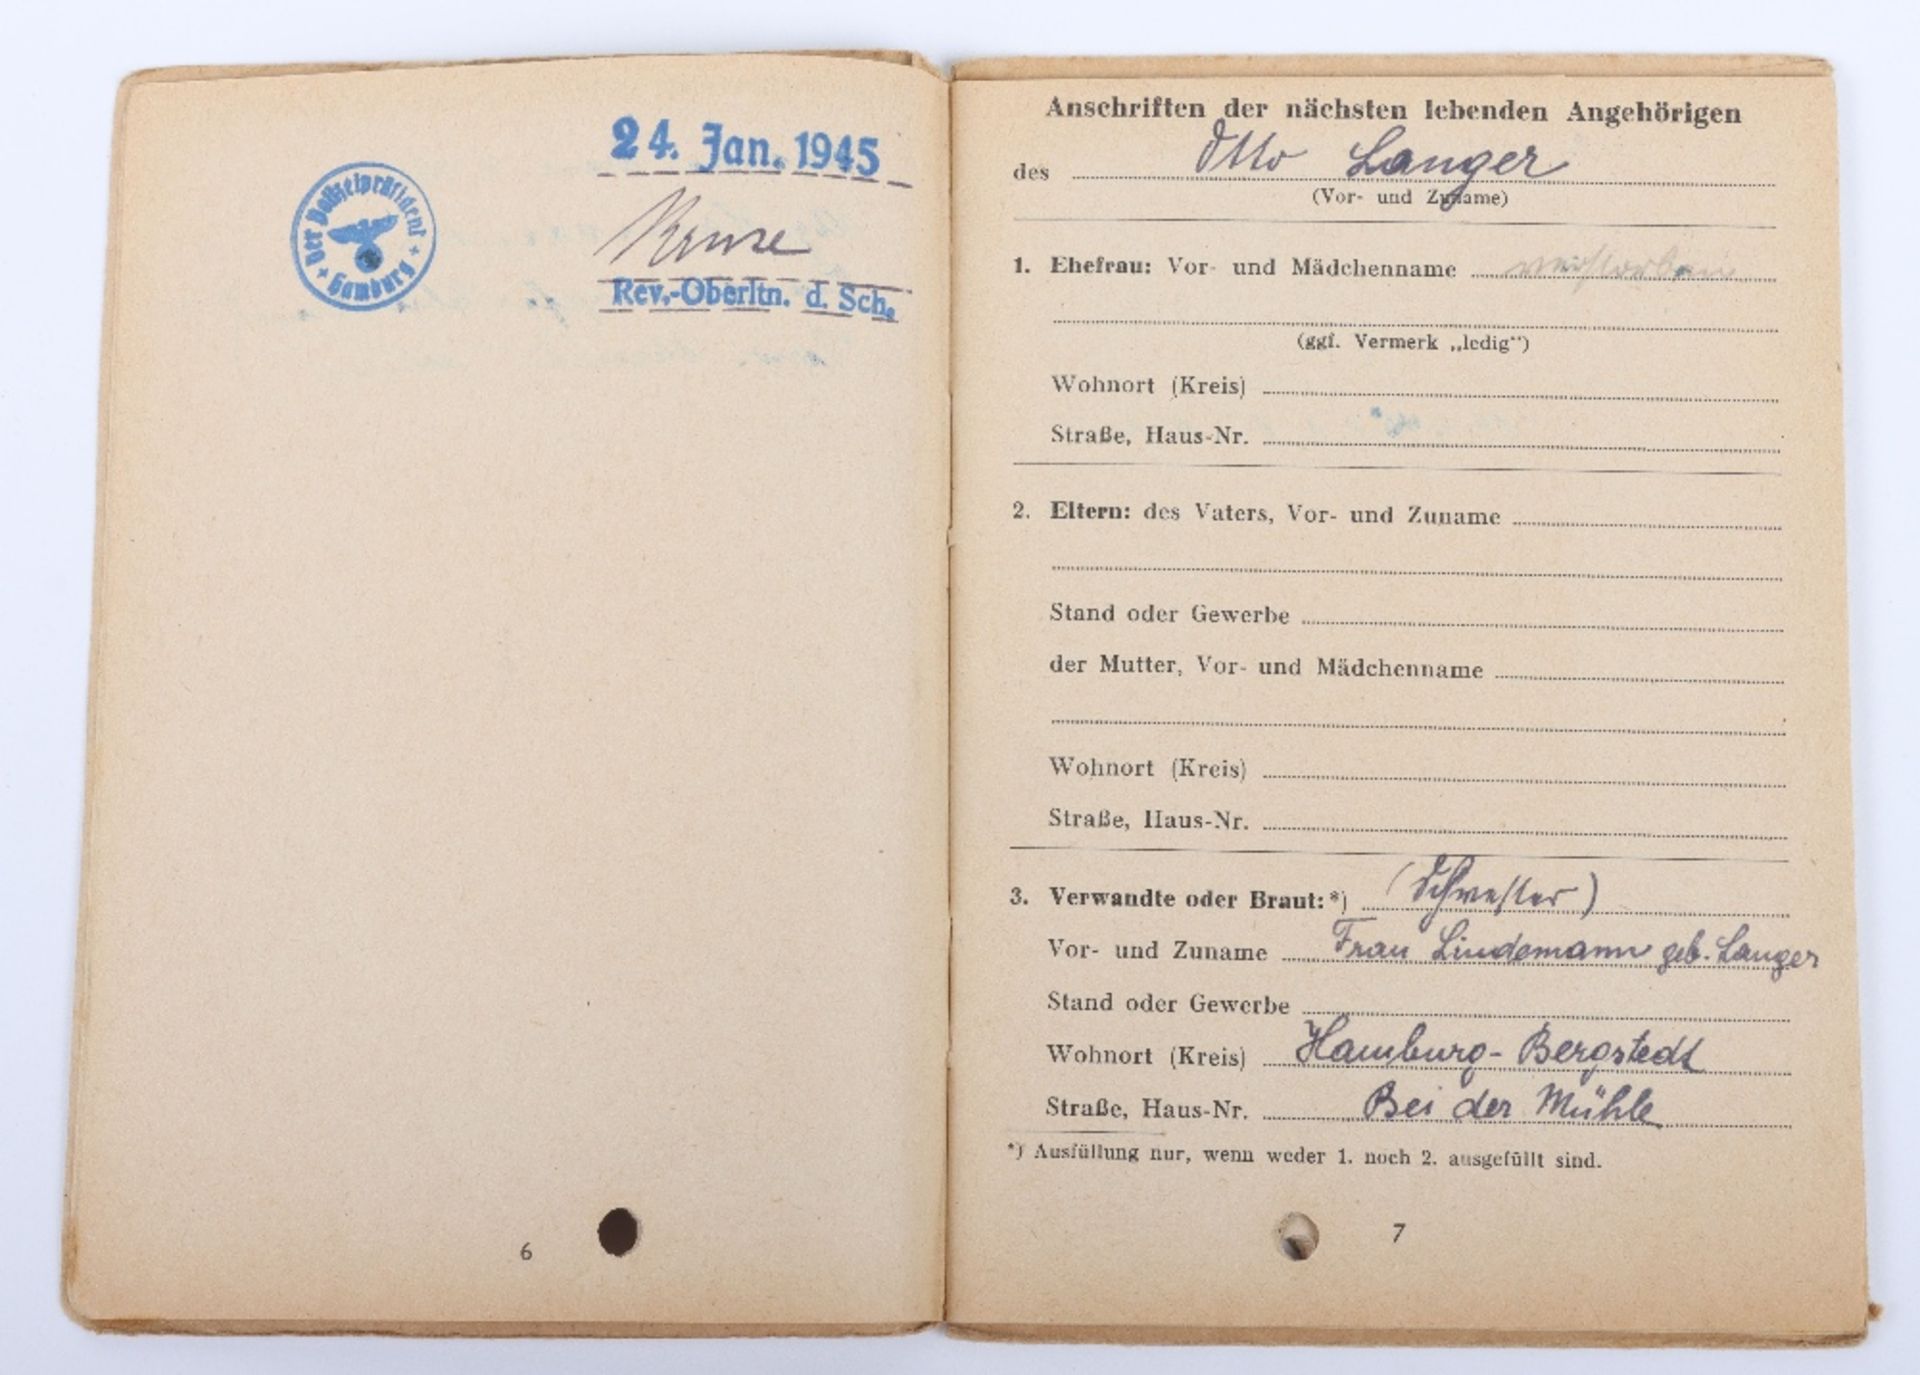 24. Jan. 1945
Der Polizeipräsident
Hamburg
Kruse
Rev.-Oberltn. d. Sch.
6
Anschriften der nächsten lebenden Angehörigen
des Otto Langer
(Vor- und Zuname)
1. Ehefrau: Vor- und Mädchenname verstorben
(ggf. Vermerk „ledig“)
Wohnort (Kreis)
Straße, Haus-Nr.
2. Eltern: des Vaters, Vor- und Zuname
Stand oder Gewerbe
der Mutter, Vor- und Mädchenname
Wohnort (Kreis)
Straße, Haus-Nr.
3. Verwandte oder Braut:*) (Schwester)
Vor- und Zuname Frau Lindemann geb. Langer
Stand oder Gewerbe
Wohnort (Kreis) Hamburg-Bergstedt
Straße, Haus-Nr. Bei der Mühle
*) Ausfüllung nur, wenn weder 1. noch 2. ausgefüllt sind.
7